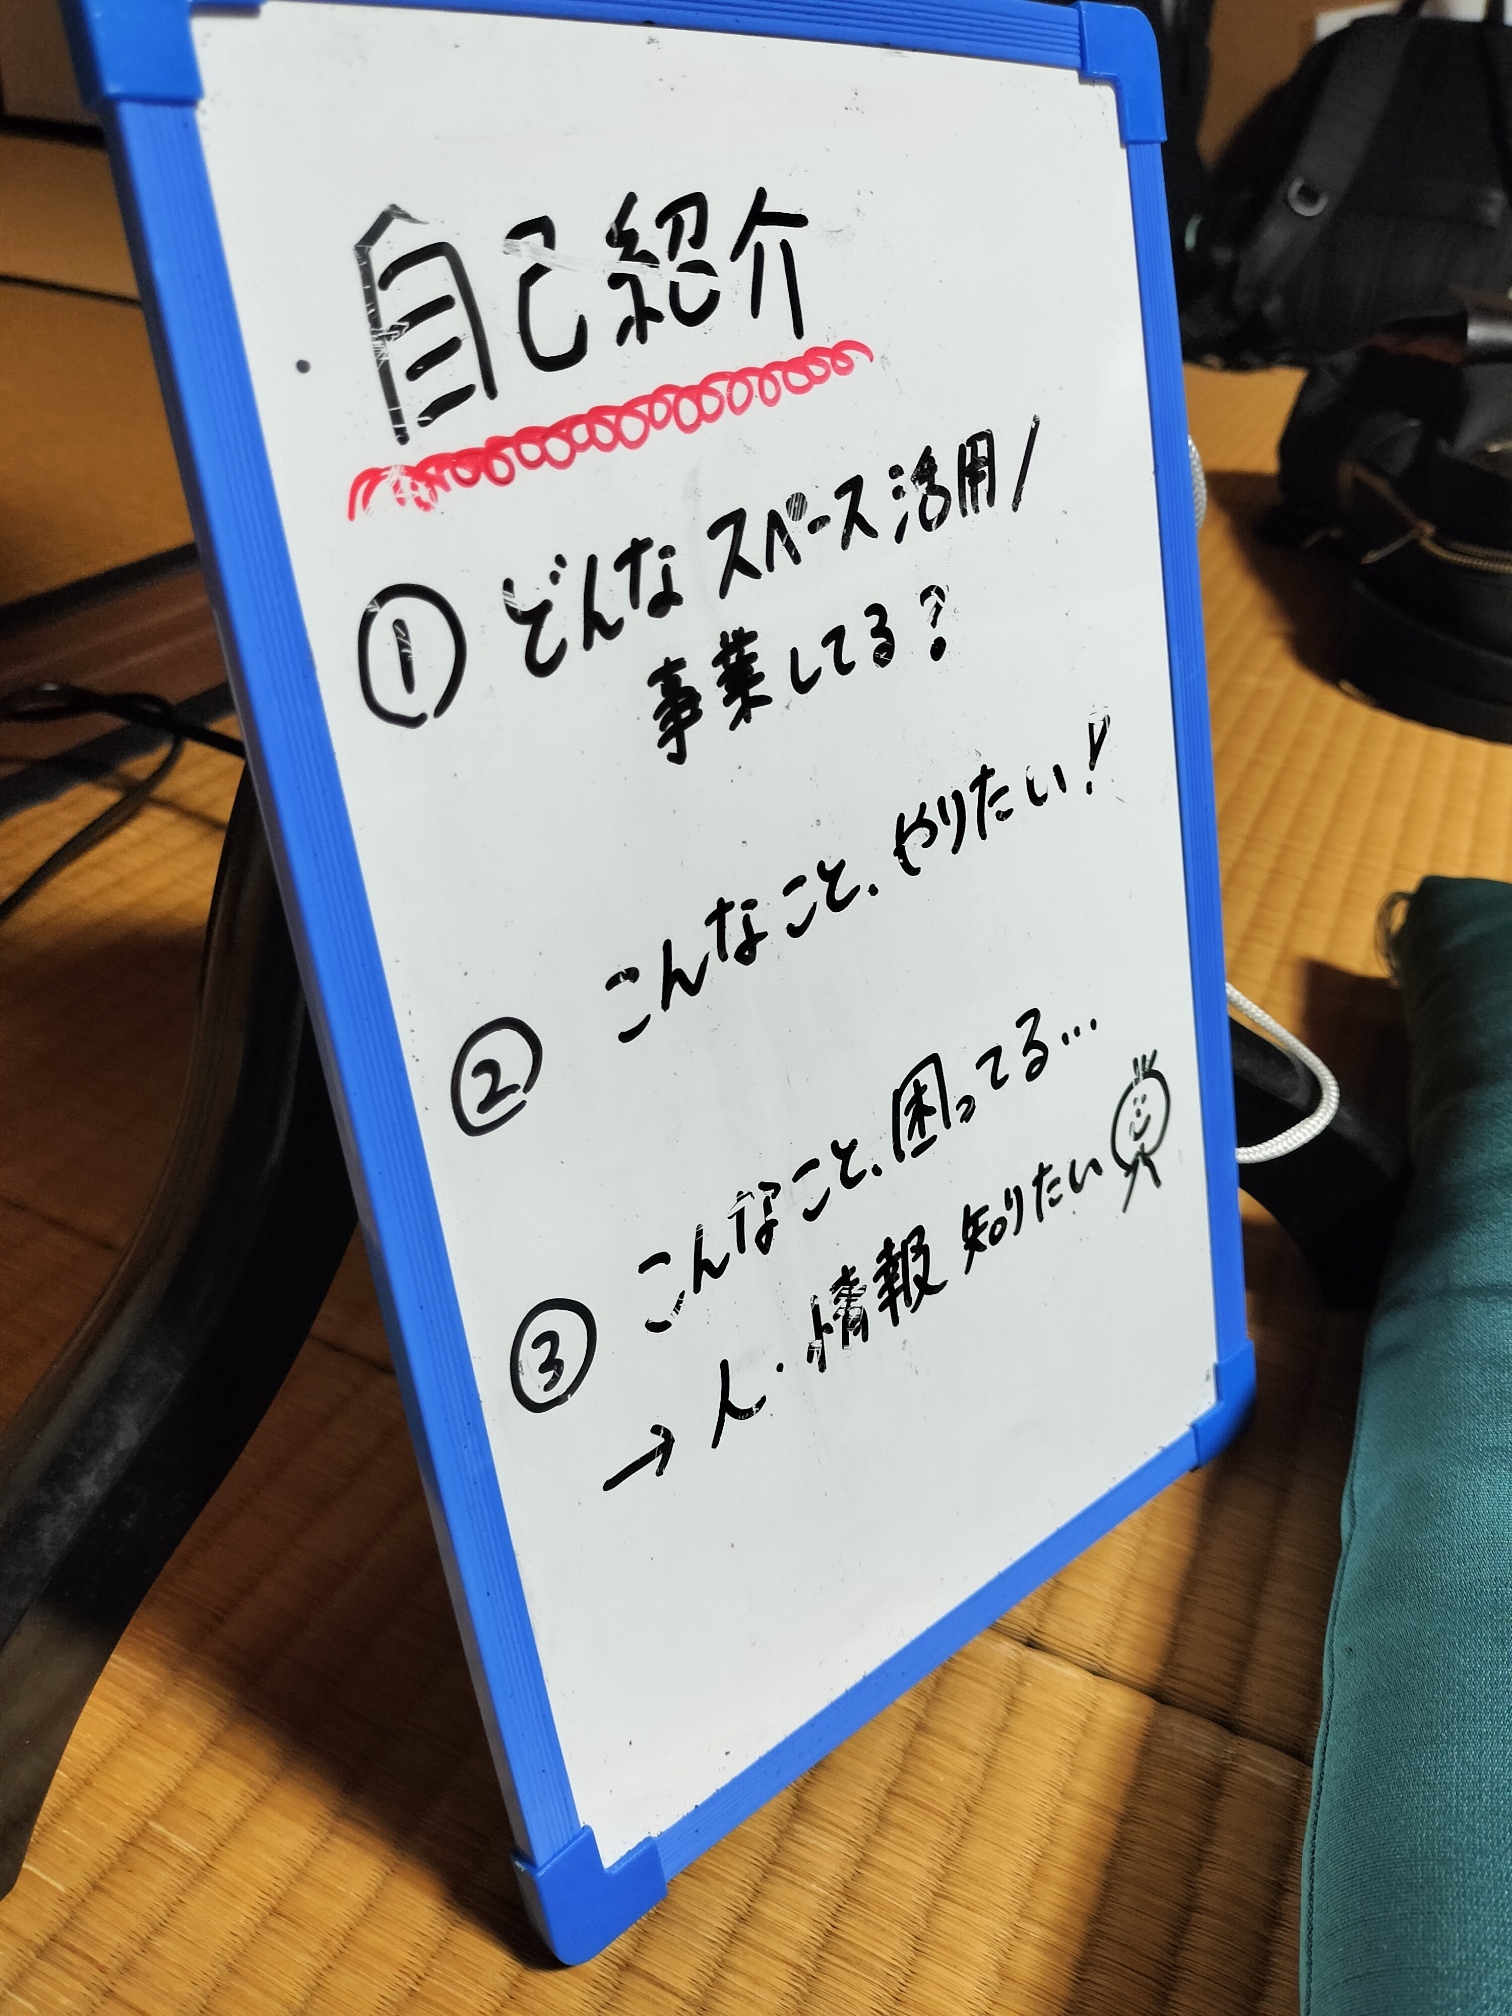 自己紹介
① どんなスペース活用/
事業してる?
② こんなこと、やりたい!
③ こんなこと、困ってる…
→ 人・情報 知りたい